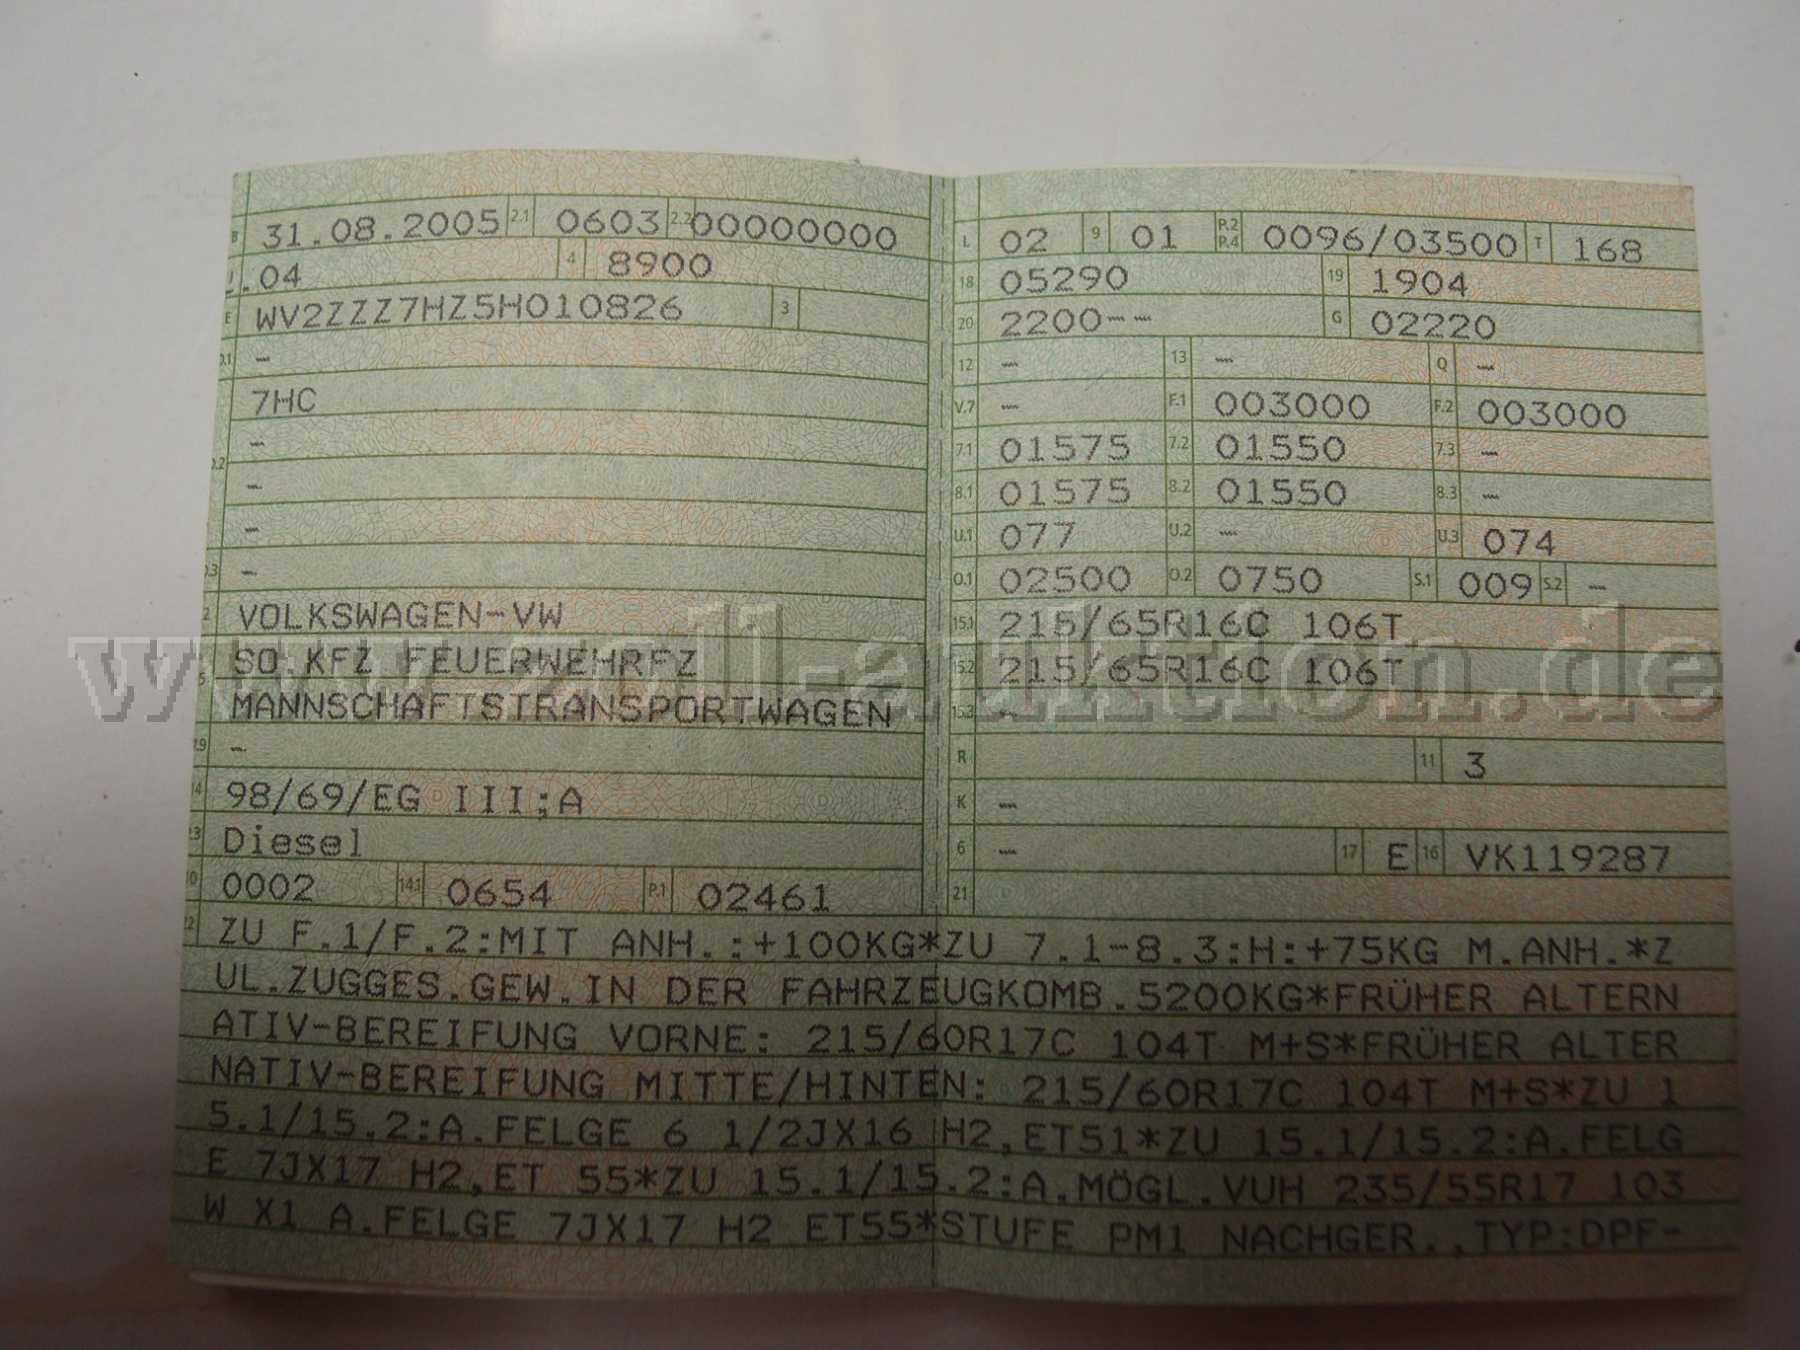 B 31.08.2005 2.1 0603 2.2 00000000
J .04 4 8900
E WV2ZZZ7HZ5H010826 3
D.1 -
7HC
D.2 -
-
-
D.3 -
2 VOLKSWAGEN-VW
5 SO.KFZ FEUERWEHRFZ
MANNSCHAFTSTRANSPORTWAGEN
V.9 -
14 98/69/EG III;A
P.3 Diesel
10 0002 14.1 0654 P.1 02461
L 02 9 01 P.2 P.4 0096/03500 T 168
18 05290 19 1904
20 2200-- G 02220
12 - 13 - Q -
V.7 - F.1 003000 F.2 003000
7.1 01575 7.2 01550 7.3 -
8.1 01575 8.2 01550 8.3 -
U.1 077 U.2 - U.3 074
O.1 02500 O.2 0750 S.1 009 S.2 -
15.1 215/65R16C 106T
15.2 215/65R16C 106T
15.3 -
R 11 3
K -
6 - 17 E 16 VK119287
21
22 ZU F.1/F.2:MIT ANH.:+100KG*ZU 7.1-8.3:H:+75KG M.ANH.*Z
UL.ZUGGES.GEW.IN DER FAHRZEUGKOMB.5200KG*FRÜHER ALTERN
ATIV-BEREIFUNG VORNE: 215/60R17C 104T M+S*FRÜHER ALTER
NATIV-BEREIFUNG MITTE/HINTEN: 215/60R17C 104T M+S*ZU 1
5.1/15.2:A.FELGE 6 1/2JX16 H2,ET51*ZU 15.1/15.2:A.FELG
E 7JX17 H2,ET 55*ZU 15.1/15.2:A.MÖGL.VUH 235/55R17 103
W X1 A.FELGE 7JX17 H2 ET55*STUFE PM1 NACHGER.,TYP:DPF-
www.zoll-auktion.de